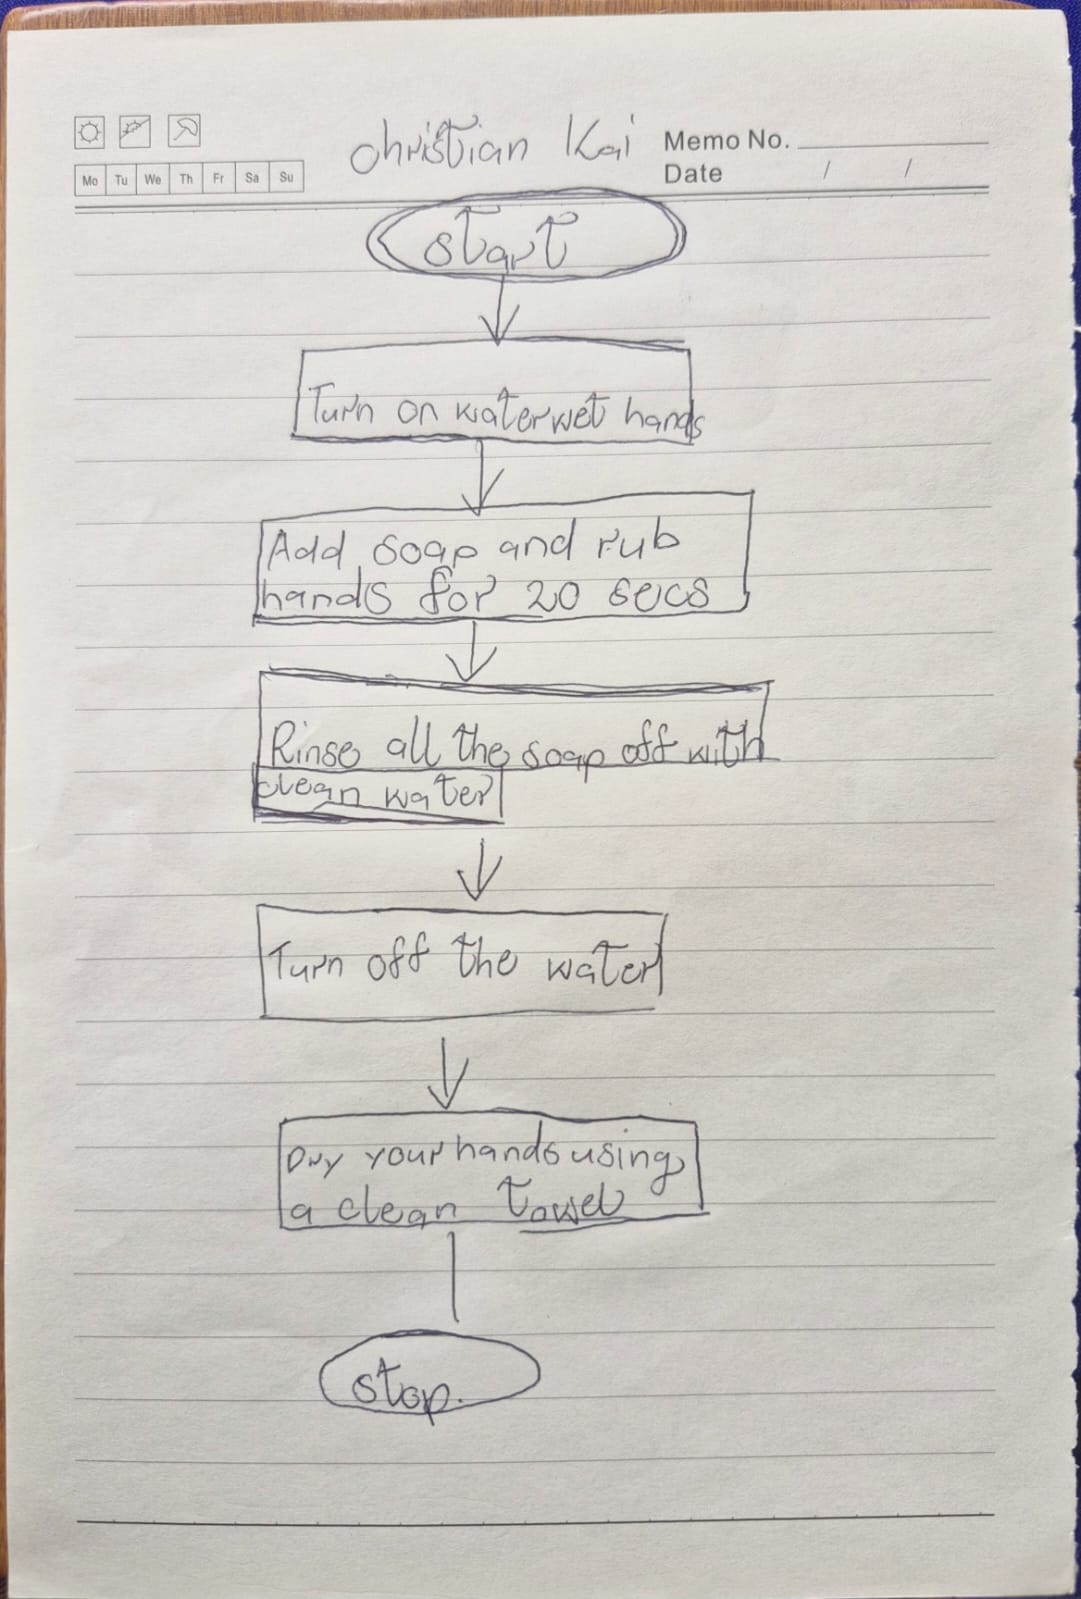 christian Kai
Memo No.
Date / /
Mo Tu We Th Fr Sa Su
start
Turn on water wet hands
Add soap and rub
hands for 20 secs
Rinse all the soap off with
clean water
Turn off the water
Dry your hands using
a clean towel
stop.